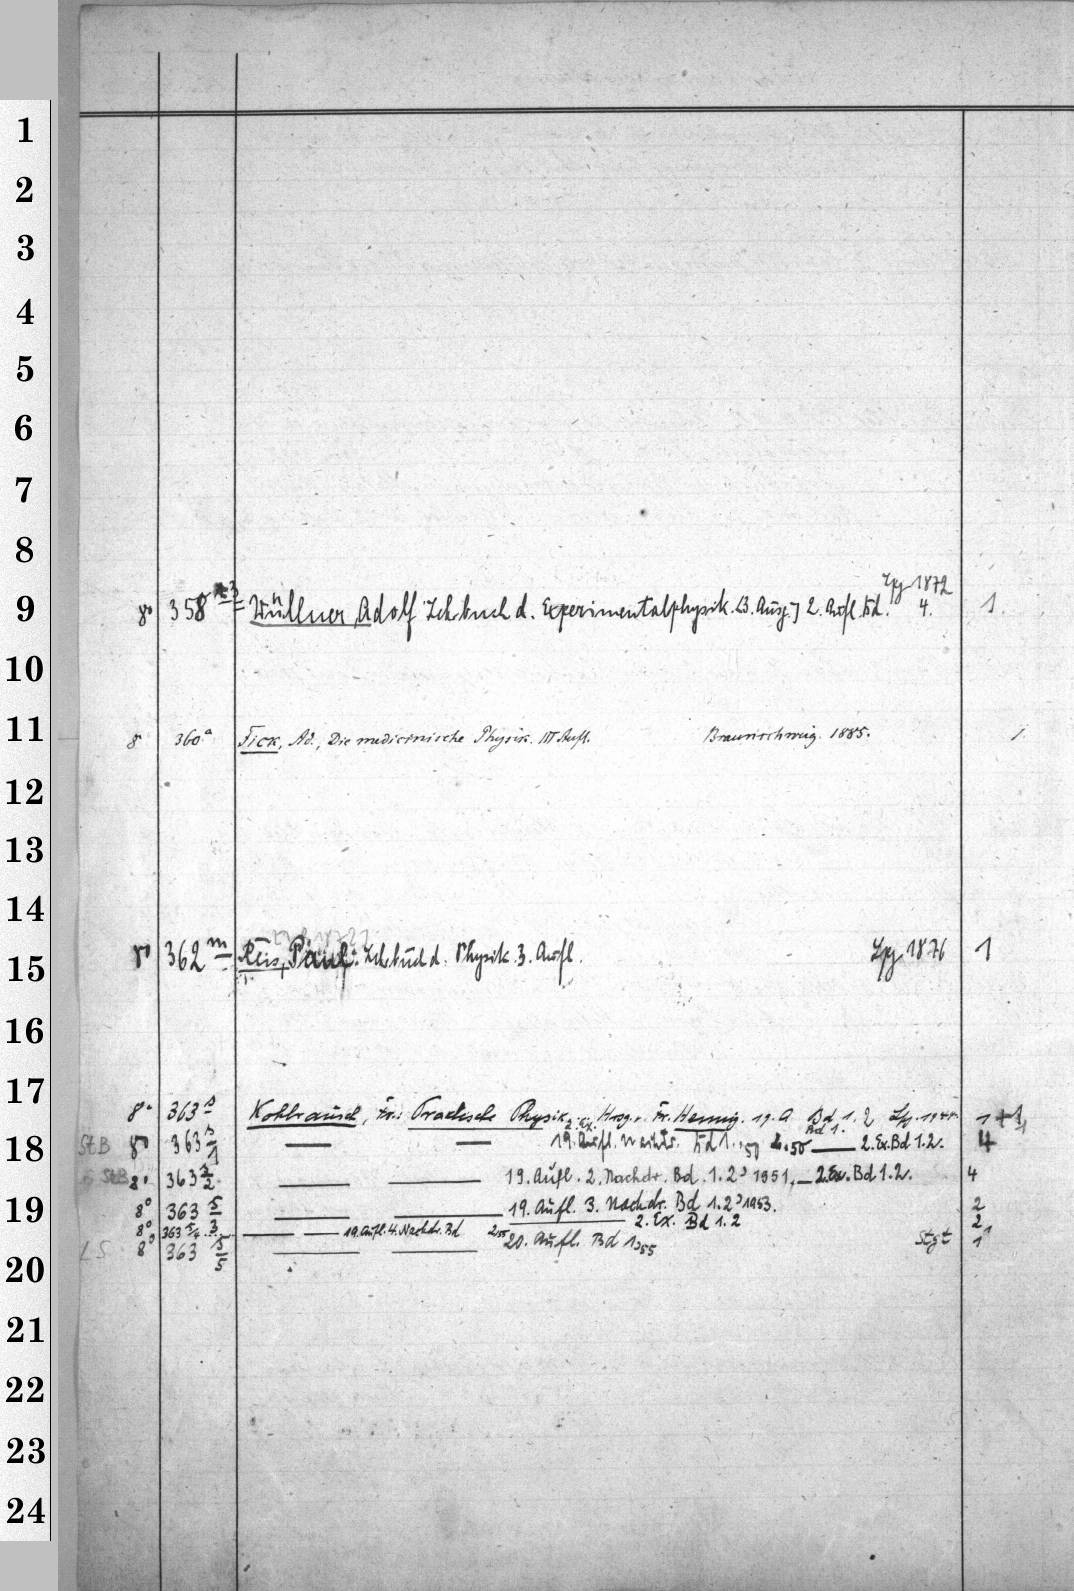 1
2
3
4
5
6
7
8
9
Lpz 1872
8° 358 Wüllner, Adolf Lehrbuch d. Experimentalphysik. [3. Ausg.] 2. Aufl. Bd. 4. 1.
10
11
8° 360.a Fick, Ad., Die medicinische Physik. III Aufl. Braunschweig. 1885. 1.
12
13
14
15
8° 362 m Reis, Paul: Lehrbuch d. Physik. 3. Aufl. Lpz 1876 1
16
17
8° 363 s Kohlrausch, Fr.: Practische Physik, Hrsg. v. Fr. Henning. 19. A Bd 1. 2
2. Ex. Bd 1.
18
StB 8° 363 s/1 19. Aufl. Bd 1., 50 2.50 2. Ex. Bd 1.2. 4
StB 8° 363 s/2 19. Aufl. 2. Nachdr. Bd. 1. 2, 1951, 2. Ex. Bd 1.2. 4
19
8° 363 s/3 19. Aufl. 3. Nachdr. Bd 1. 2, 1953. 2
2. Ex. Bd 1.2 2
8° 363 s/4 19. Aufl. 4. Nachdr. Bd 2,55 1
LS 8° 363 s/5 20. Aufl. Bd 1,55 Stgt 1
20
21
22
23
24